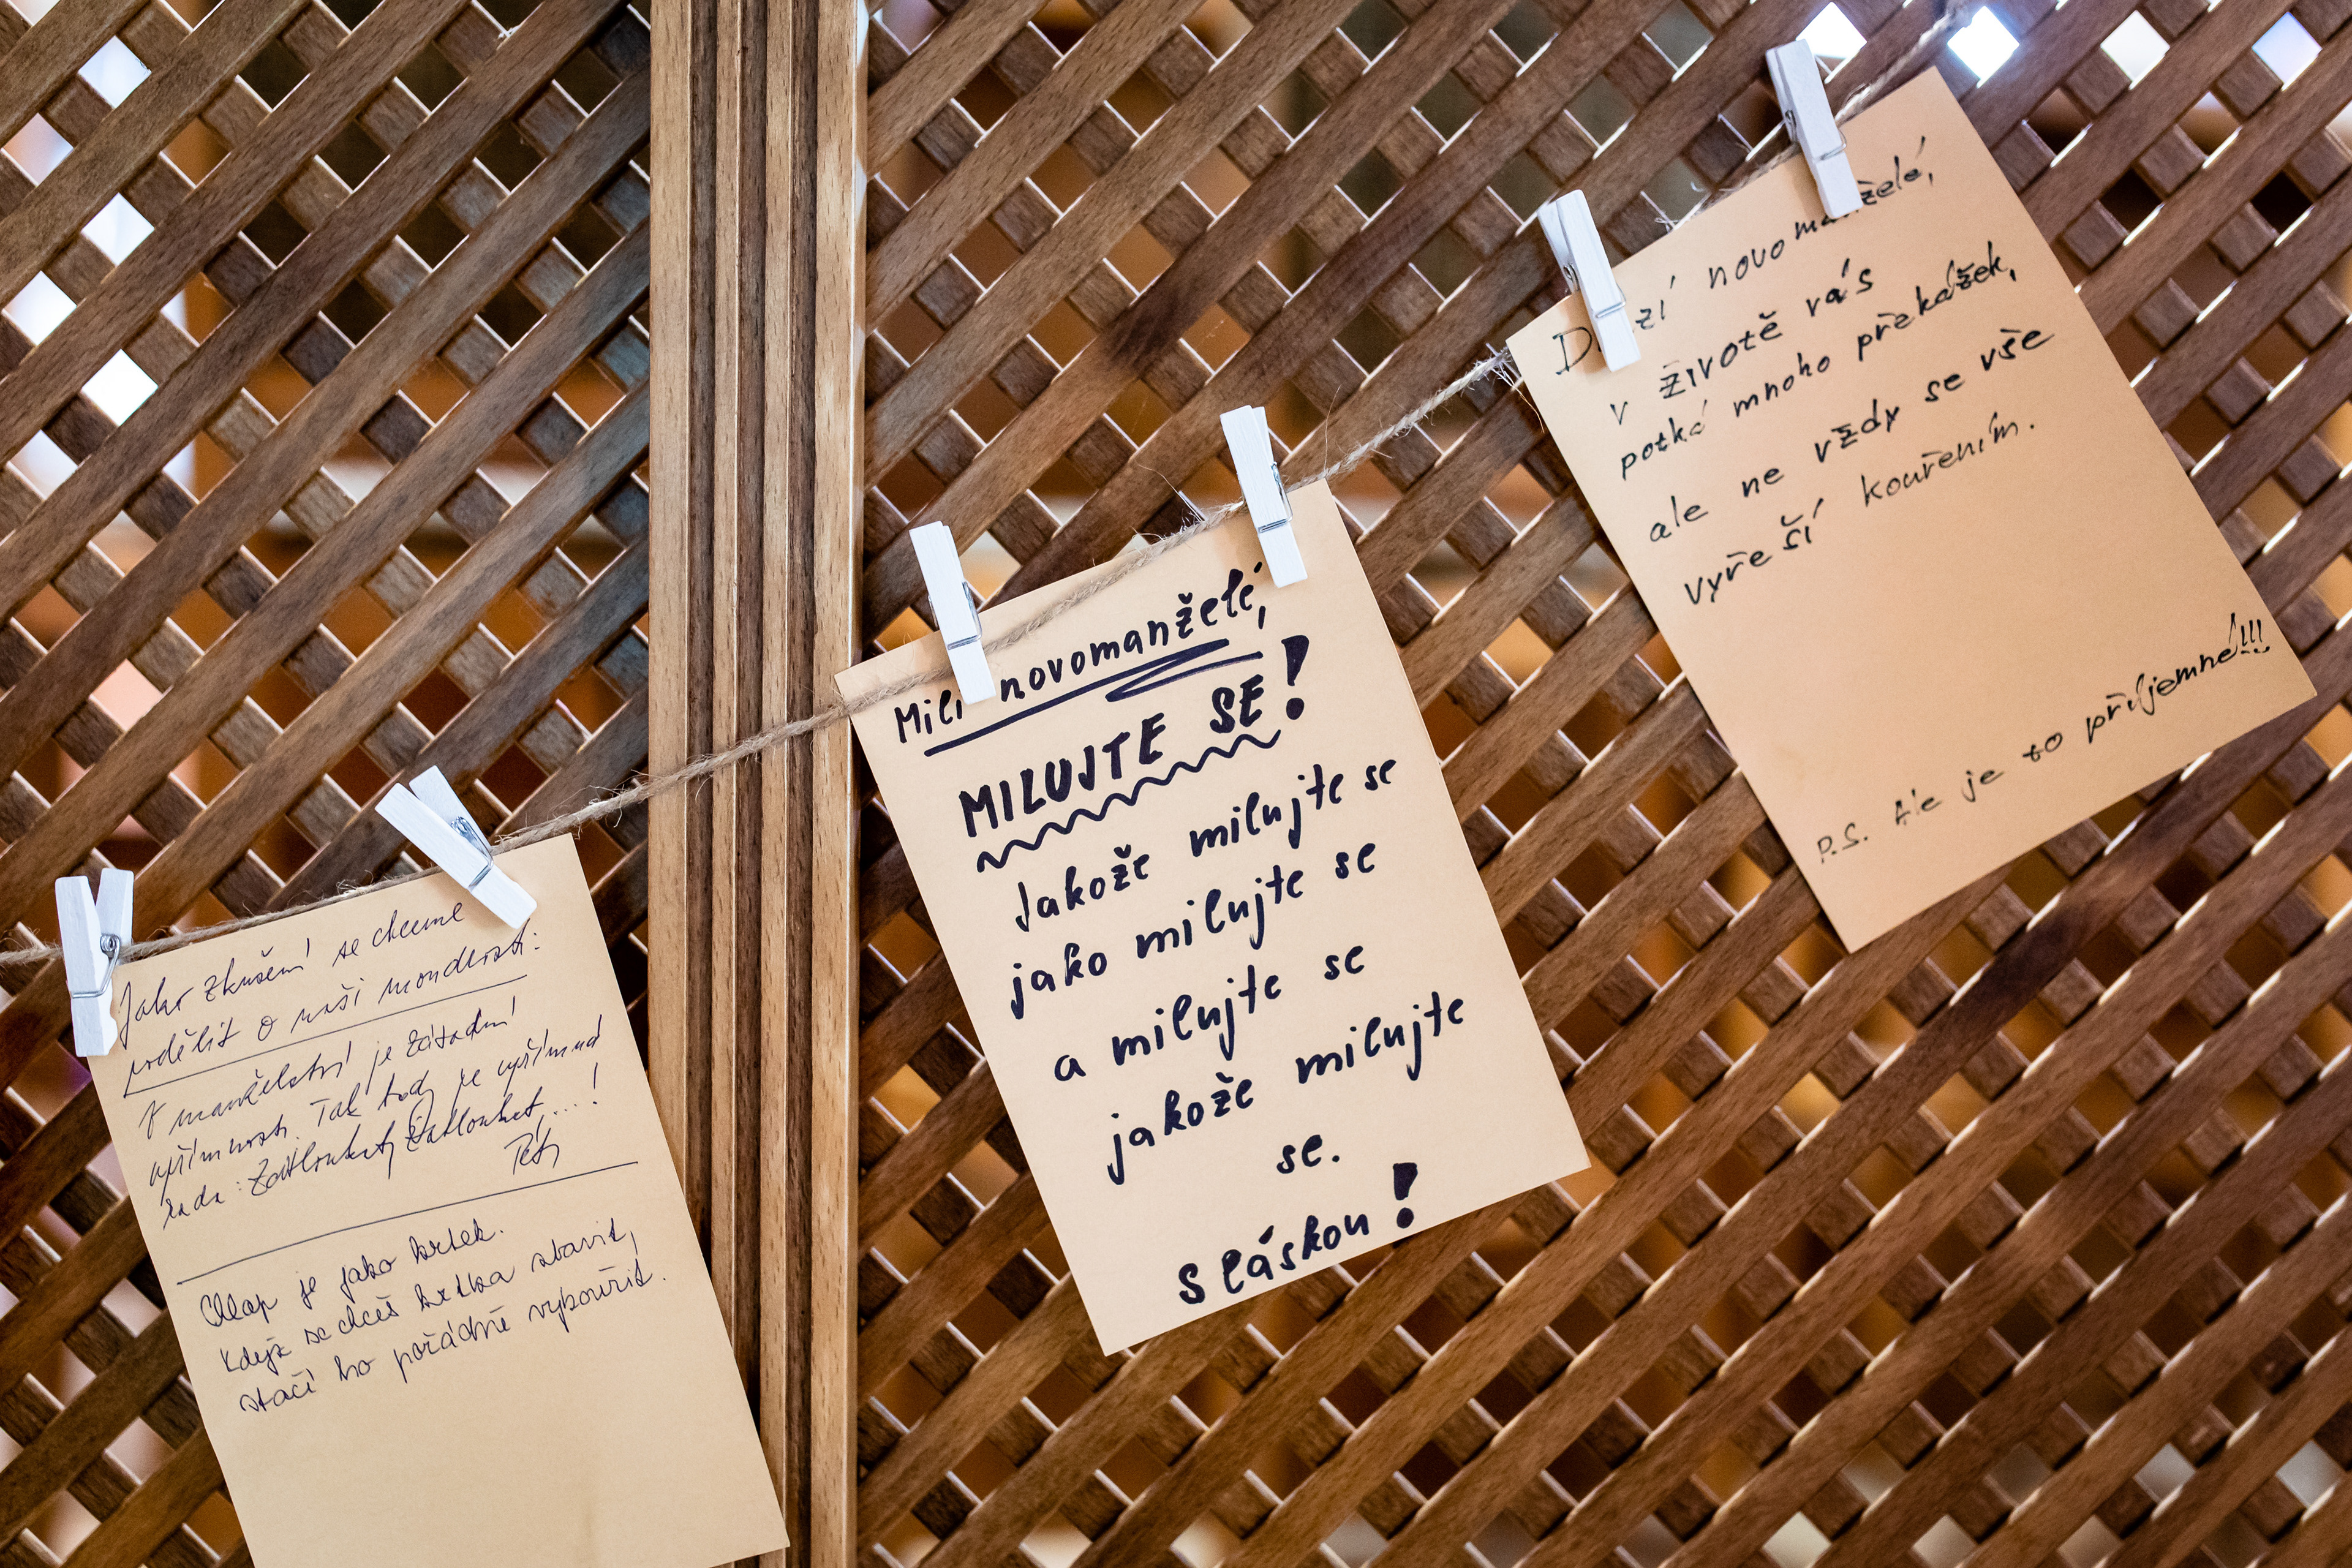 Jako zkušení se chceme
podělit o naši moudrost:
V manželství je zásadní
upřímnost. Tak tedy je upřímná
rada:
Chlap je jako krtek.
Když se chceš krtka zbavit,
stačí ho pořádně vykouřit.
Milí novomanželé,
MILUJTE SE!
Jakože milujte se
jako milujte se
a milujte se
jakože milujte
se.
S láskou!
novomanželé,
v životě vás
potká mnoho překážek,
ale ne vždy se vše
vyřeší kouřením.
P.S. Ale je to příjemné!!!